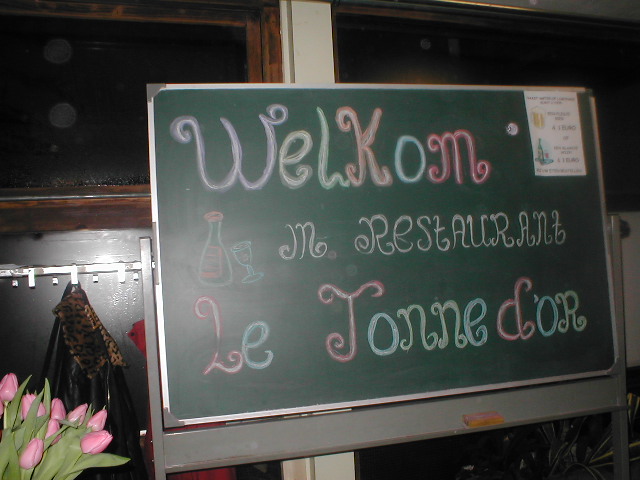 Welkom
in Restaurant
Le Tonne d'or